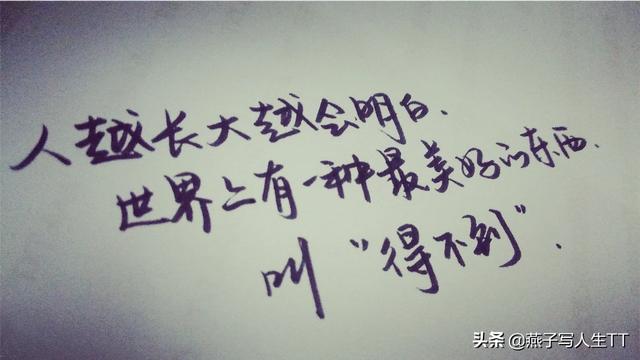 人越长大越会明白.
世界上有一种最美好的东西.
叫“得不到”.
头条 @燕子写人生TT